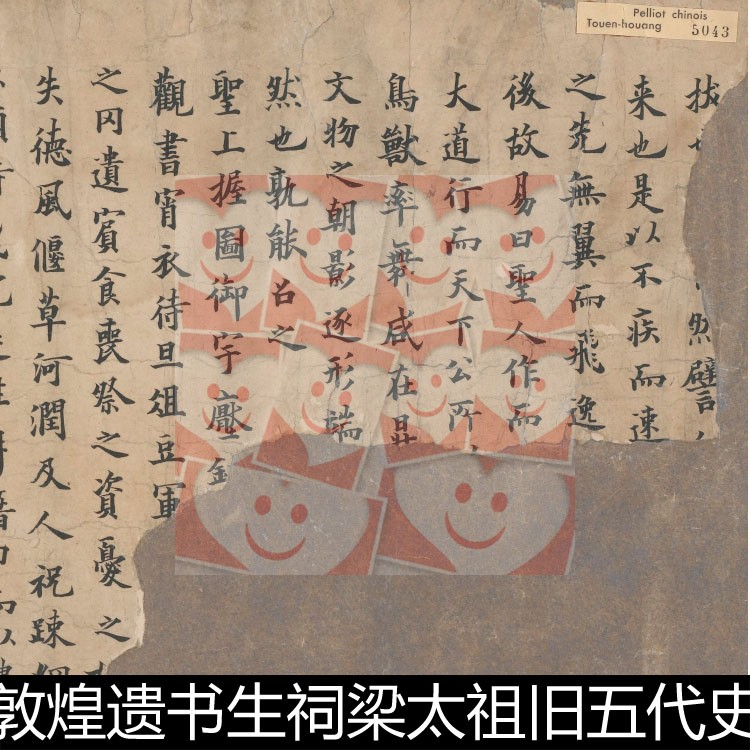 Pelliot chinois
Touen-houang 5043
拔 然譬
来也是以不疾而速
之先無翼而飛逸
後故易曰聖人作而
大道行而天下公所
鳥獸率舞咸在
文物之朝影逐形端
然也孰能召之
聖上握圖御宇壓
觀書宵衣待旦俎豆軍
之冈遺賓食喪祭之資憂之
失德風偃草河潤及人祝踈
敦煌遗书生祠梁太祖旧五代史